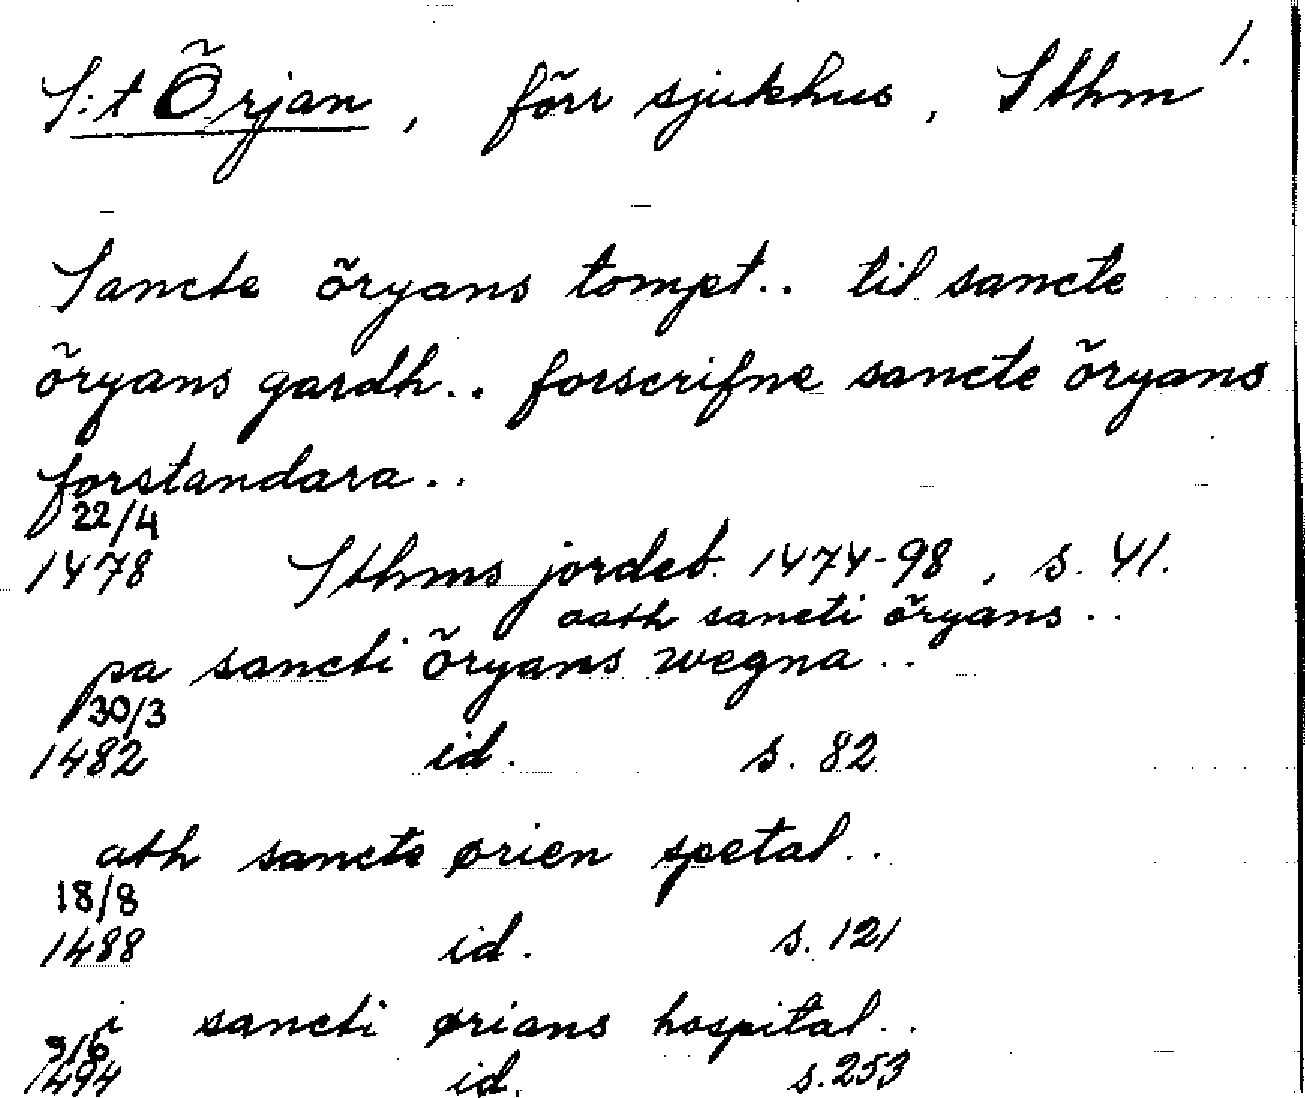 1.
S:t Örjan, förr sjukhus, Sthm
Sancte öryans tompt.. til sancte
öryans gardh.. forscrifne sancte öryans
forstandara..
22/4
1478 Sthms jordeb. 1474-98, s. 41.
aath sancti öryans..
pa sancti öryans wegna..
30/3
1482 id. s. 82
ath sancte ørien spetal..
18/8
1488 id. s. 121
i sancti ørians hospital..
9/6
1494 id. s. 253